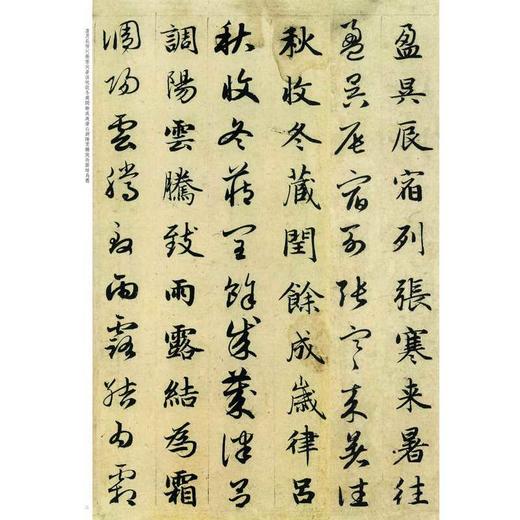 盈昃辰宿列張寒来暑往
盈昃辰宿列張寒来暑往
秋收冬蔵閏餘成歳律吕
秋收冬蔵閏餘成歳律吕
調陽雲騰致雨露結為霜
調陽雲騰致雨露結為霜